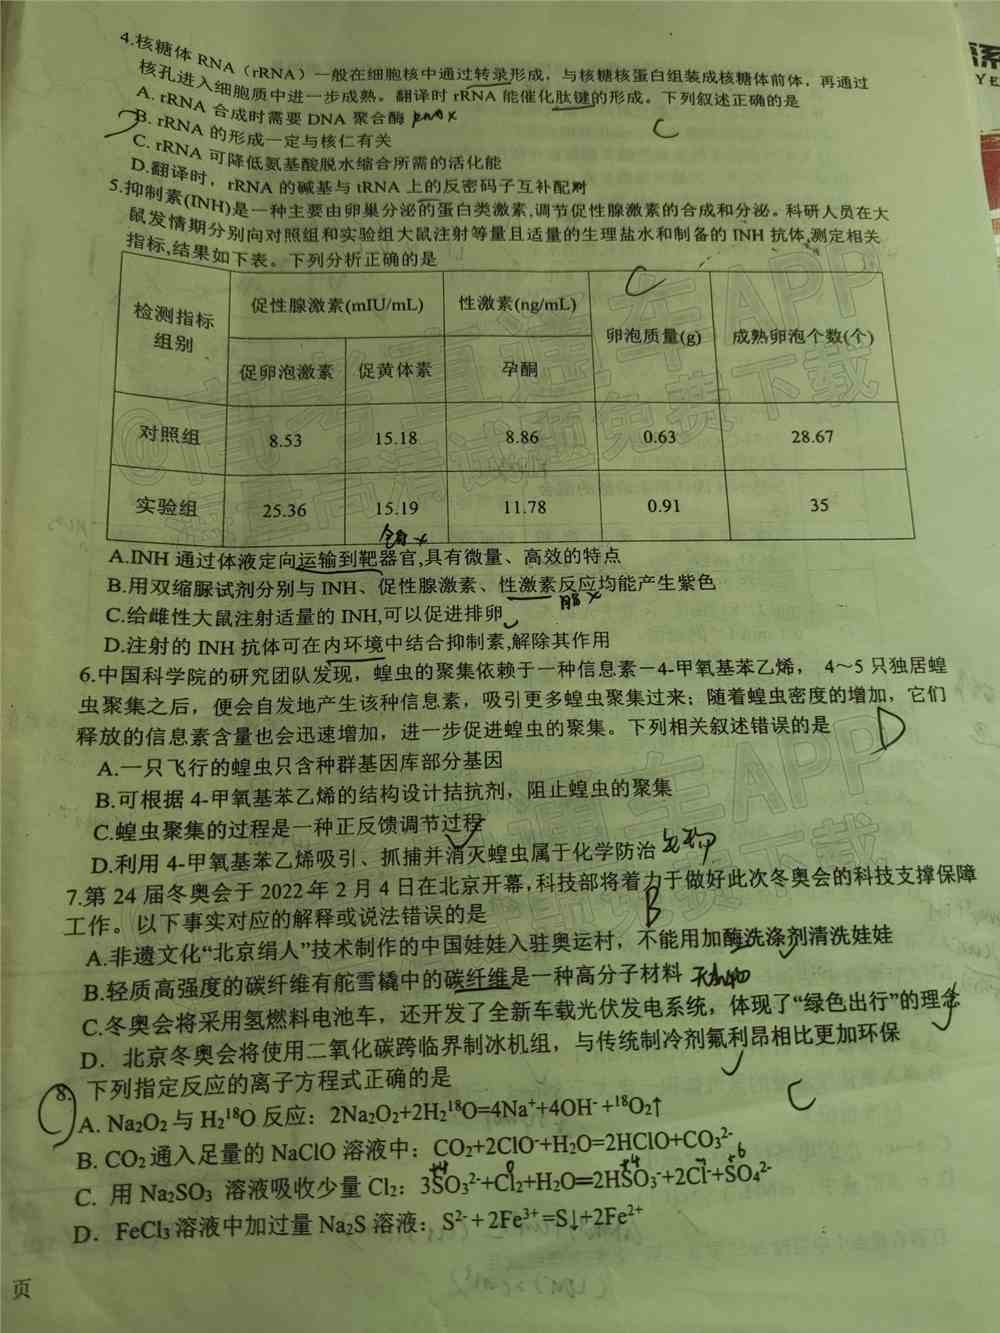 4.核糖体 RNA（rRNA）一般在细胞核中通过转录形成，与核糖核蛋白组装成核糖体前体，再通过
核孔进入细胞质中进一步成熟。翻译时 rRNA 能催化肽键的形成。下列叙述正确的是
A. rRNA 合成时需要 DNA 聚合酶 RNA x
C
B. rRNA 的形成一定与核仁有关
C. rRNA 可降低氨基酸脱水缩合所需的活化能
D.翻译时，rRNA 的碱基与 tRNA 上的反密码子互补配对
5.抑制素(INH)是一种主要由卵巢分泌的蛋白类激素,调节促性腺激素的合成和分泌。科研人员在大
鼠发情期分别向对照组和实验组大鼠注射等量且适量的生理盐水和制备的 INH 抗体,测定相关
指标,结果如下表。下列分析正确的是
C
检测指标 促性腺激素(mIU/mL) 性激素(ng/mL) 卵泡质量(g) 成熟卵泡个数(个)
组别 促卵泡激素 促黄体素 孕酮
对照组 8.53 15.18 8.86 0.63 28.67
实验组 25.36 15.19 11.78 0.91 35
A.INH 通过体液定向运输到靶器官,具有微量、高效的特点
B.用双缩脲试剂分别与 INH、促性腺激素、性激素反应均能产生紫色
C.给雌性大鼠注射适量的 INH,可以促进排卵
D.注射的 INH 抗体可在内环境中结合抑制素,解除其作用
6.中国科学院的研究团队发现，蝗虫的聚集依赖于一种信息素－4-甲氧基苯乙烯， 4～5 只独居蝗
虫聚集之后，便会自发地产生该种信息素，吸引更多蝗虫聚集过来；随着蝗虫密度的增加，它们
释放的信息素含量也会迅速增加，进一步促进蝗虫的聚集。下列相关叙述错误的是
D
A.一只飞行的蝗虫只含种群基因库部分基因
B.可根据 4-甲氧基苯乙烯的结构设计拮抗剂，阻止蝗虫的聚集
C.蝗虫聚集的过程是一种正反馈调节过程
D.利用 4-甲氧基苯乙烯吸引、抓捕并消灭蝗虫属于化学防治 生物
7.第 24 届冬奥会于 2022 年 2 月 4 日在北京开幕,科技部将着力于做好此次冬奥会的科技支撑保障
工作。以下事实对应的解释或说法错误的是
B
A.非遗文化“北京绢人”技术制作的中国娃娃入驻奥运村，不能用加酶洗涤剂清洗娃娃
B.轻质高强度的碳纤维有舵雪橇中的碳纤维是一种高分子材料 无机物
C.冬奥会将采用氢燃料电池车，还开发了全新车载光伏发电系统，体现了“绿色出行”的理念
D．北京冬奥会将使用二氧化碳跨临界制冰机组，与传统制冷剂氟利昂相比更加环保
8. 下列指定反应的离子方程式正确的是
C
A. Na₂O₂ 与 H₂¹⁸O 反应：2Na₂O₂+2H₂¹⁸O=4Na⁺+4OH⁻+¹⁸O₂↑
B. CO₂ 通入足量的 NaClO 溶液中：CO₂+2ClO⁻+H₂O=2HClO+CO₃²⁻
+4 0 +4 +6
C. 用 Na₂SO₃ 溶液吸收少量 Cl₂：3SO₃²⁻+Cl₂+H₂O=2HSO₃⁻+2Cl⁻+SO₄²⁻
D．FeCl₃ 溶液中加过量 Na₂S 溶液：S²⁻+2Fe³⁺=S↓+2Fe²⁺
页